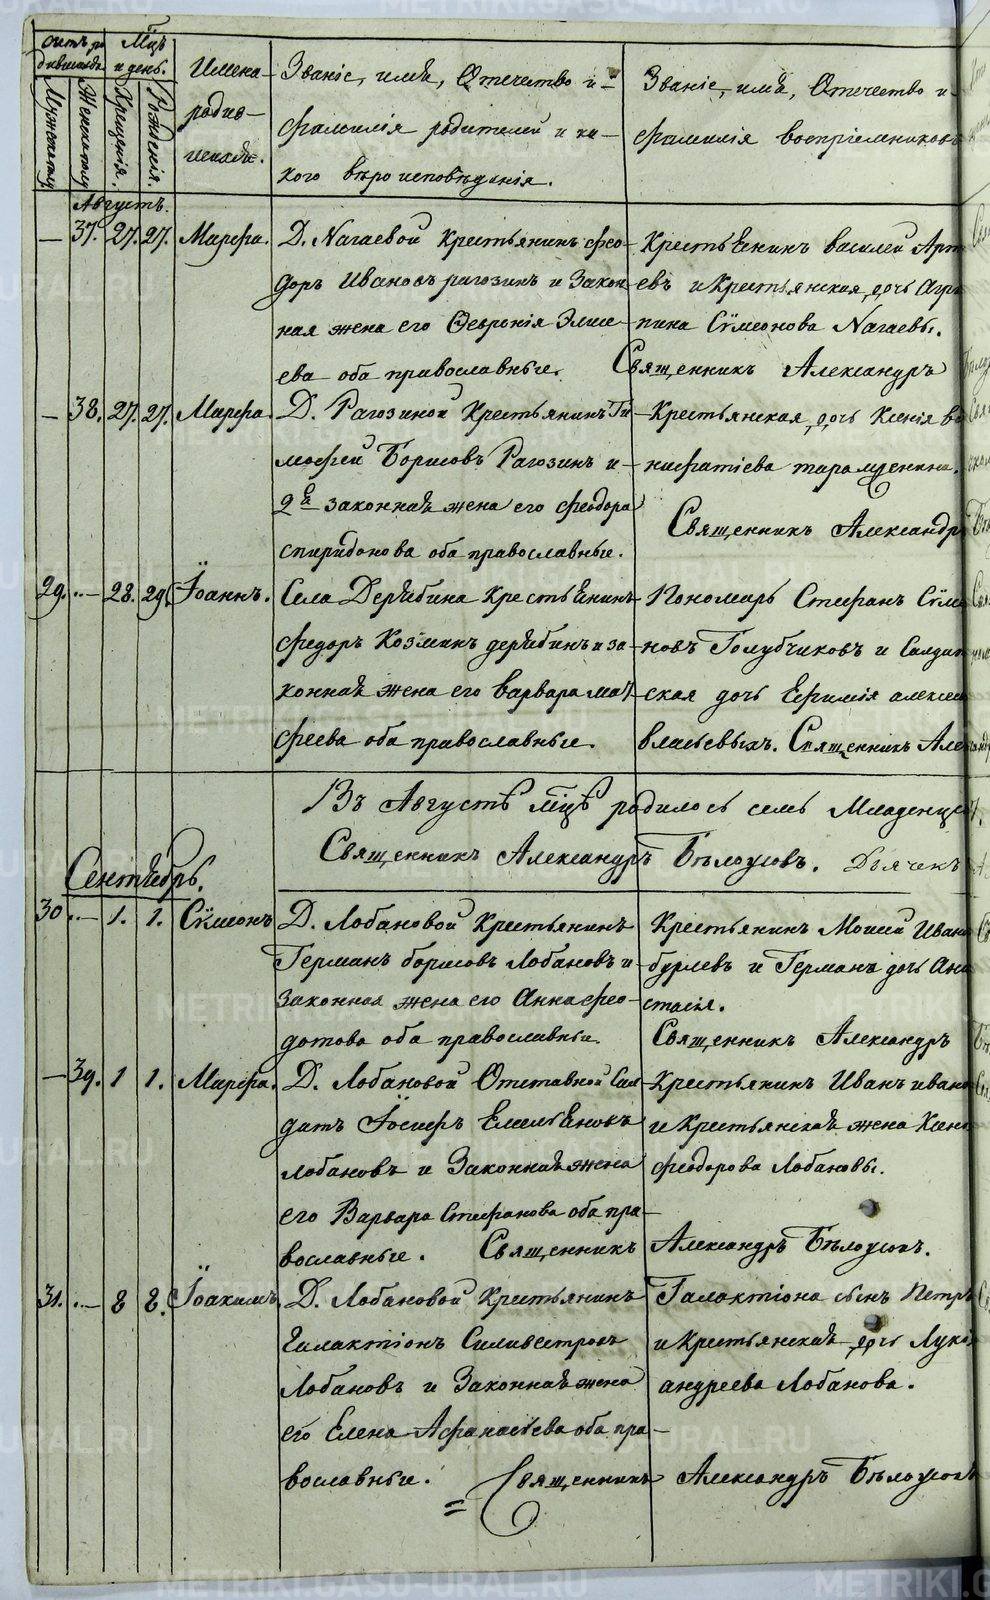 Счетъ ро
дившихся
Мѣцъ
и день.
Мужескому
Женскому
Крещенія.
Рожденія.
Имена
родив-
шихся.
Званіе, имя, Отечество и
фамилія родителей и ка-
кого вѣроисповѣданія.
Званіе, имя, Отечество и
фамилія воспріемниковъ
Августъ.
— 37. 27. 27. Марѳа. Д. Нагаевой Крестьянинъ Фео-
доръ Ивановъ рагозинъ и Закон-
ная жена его Ѳевронія Элисе
ева оба православные.
Крестьянинъ Василей Арт
евъ и Крестьянская дочь Агри
пина Сѵмеонова Нагаевы.
Священникъ Александръ
— 38. 27. 27. Марѳа. Д. Рагозиной Крестьянинъ Ти-
мофей Борисовъ Рагозинъ и
2я законная жена его Феодора
спиридонова оба православные.
Крестьянская дочь Ксенія во
нифатіева
Священникъ Александръ
29. — 28. 29. Іоаннъ. Села Дерябина Крестьянинъ
федоръ Козминъ дерябинъ и за-
конная жена его Варвара мат
феева оба православные.
Пономарь Стефанъ Сѵме
новъ Голубчиковъ и Салдат
ская дочь Ефимія алексе
власьевыхъ. Священникъ Алек
Въ Августѣ мцѣ родилось семь Младенцев.
Священникъ Александръ Бѣлоусовъ. Дьячекъ
Сентябрь.
30 — 1. 1. Сѵмеонъ Д. Лобановой Крестьянинъ
Германъ борисовъ Лобановъ и
законная жена его Анна фео-
дотова оба православны.
Крестьянинъ Моисей Ивано
бурлевъ и Германъ дочь Ана
стасія.
Священникъ Александръ
— 39. 1 1. Марѳа. Д. Лобановой Отставной Сал
датъ Іосифъ Емельяновъ
лобановъ и Законная жена
его Варвара Стефанова оба пра-
вославные. Священникъ Александръ Бѣлоусовъ.
Крестьянинъ Иванъ ивано
и Крестьянская жена Ксені
феодорова Лобановы.
31. — 8 8. Іоакимъ Д. Лобановой Крестьянинъ
Галактіонъ Силивестровъ
Лобановъ и Законная жена
его Елена Афанасьева оба пра-
вославные. Священникъ Александръ Бѣлоусовъ
Галактіона сынъ Петръ
и Крестьянская дочь Луке
андреева Лобанова.
METRIKI.GASO-URAL.RU